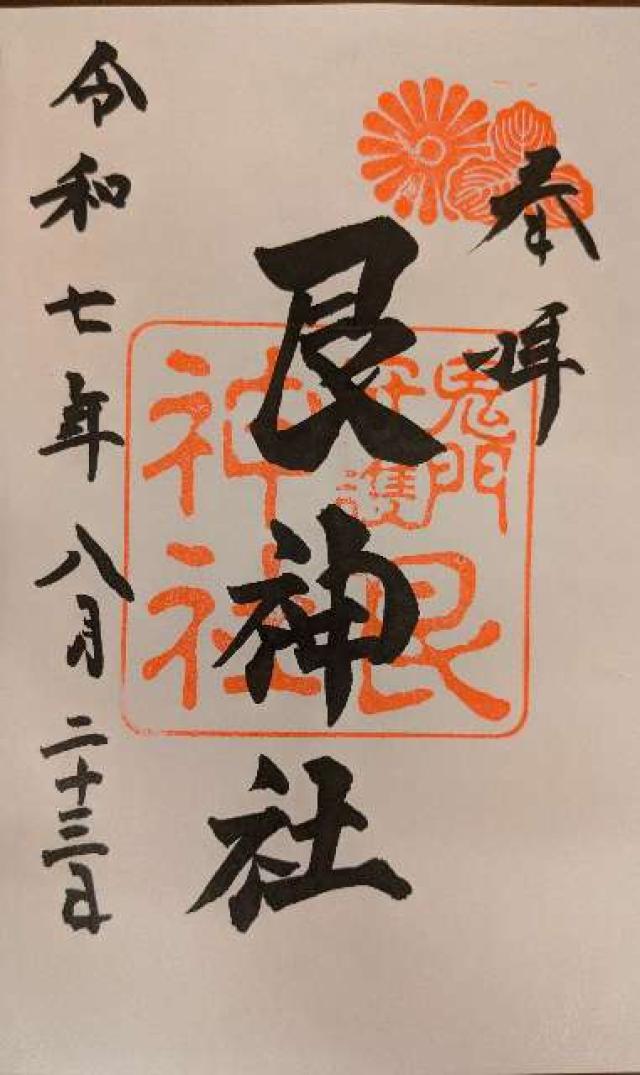 奉拝
艮神社
鬼門
守護
艮
神社
令和七年八月二十三日